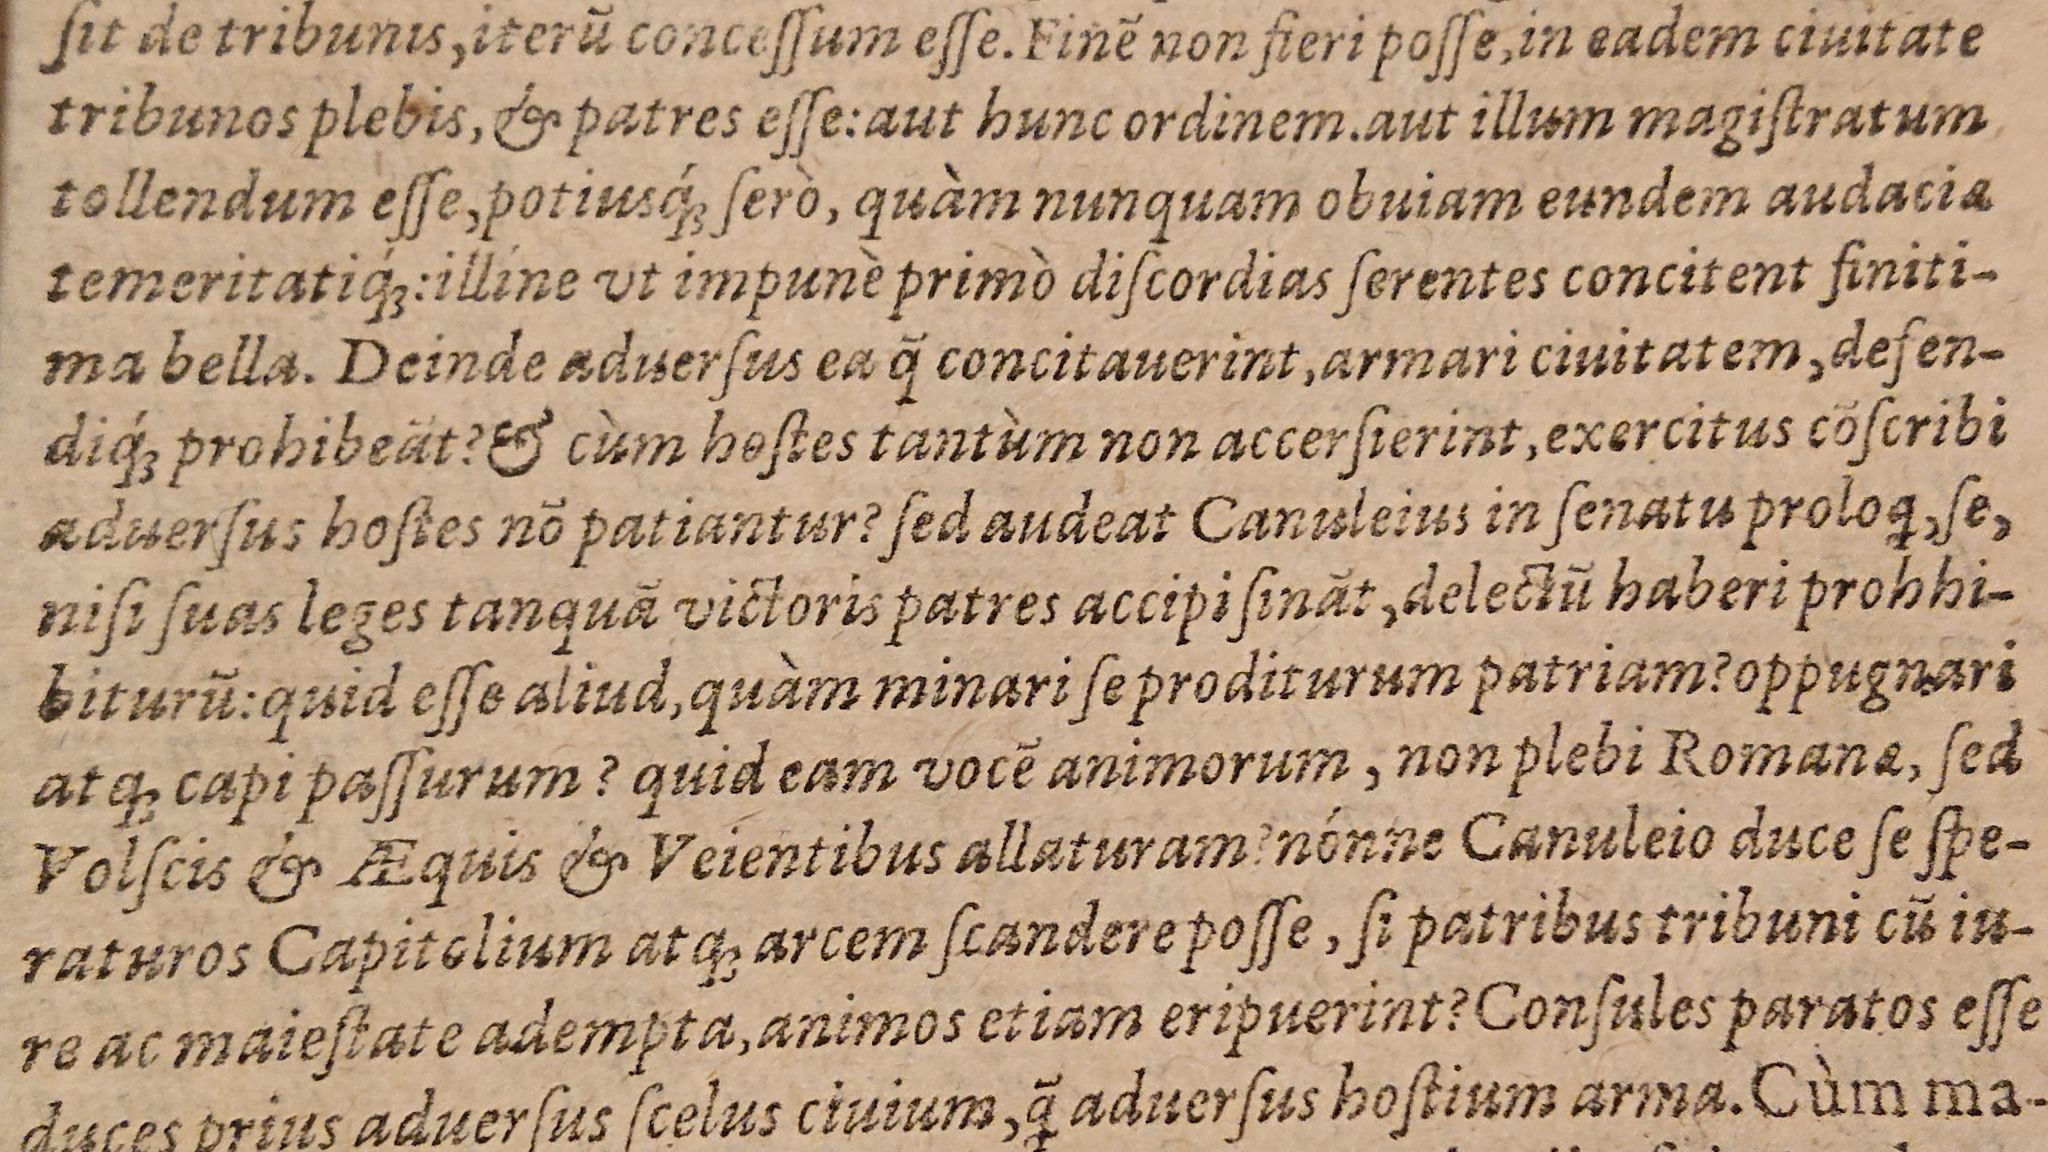 ſit de tribunis, iterū conceſſum eſſe. Finẽ non fieri poſſe, in eadem ciuitate
tribunos plebis, & patres eſſe: aut hunc ordinem. aut illum magiſtratum
tollendum eſſe, potiusq́ꝫ ſerò, quàm nunquam obuiam eundem audaciæ
temeritatiq́ꝫ: illíne vt impunè primò diſcordias ſerentes concitent finiti-
ma bella. Deinde aduerſus ea q̃ concitauerint, armari ciuitatem, defen-
diq́ꝫ prohibeãt? & cùm hoſtes tantùm non accerſierint, exercitus cõſcribi
aduerſus hoſtes nõ patiantur? ſed audeat Canuleius in ſenatu proloq, ſe,
niſi ſuas leges tanquã victoris patres accipi ſinãt, delectũ haberi prohhi-
biturũ: quid eſſe aliud, quàm minari ſe proditurum patriam? oppugnari
atqꝫ capi paſſurum? quid eam vocẽ animorum, non plebi Romanæ, ſed
Volſcis & Æquis & Veientibus allaturam? nónne Canuleio duce ſe ſpe-
raturos Capitolium atqꝫ arcem ſcandere poſſe, ſi patribus tribuni cũ iu-
re ac maieſtate adempta, animos etiam eripuerint? Conſules paratos eſſe
duces prius aduerſus ſcelus ciuium, q̃ aduerſus hoſtium arma. Cùm ma-